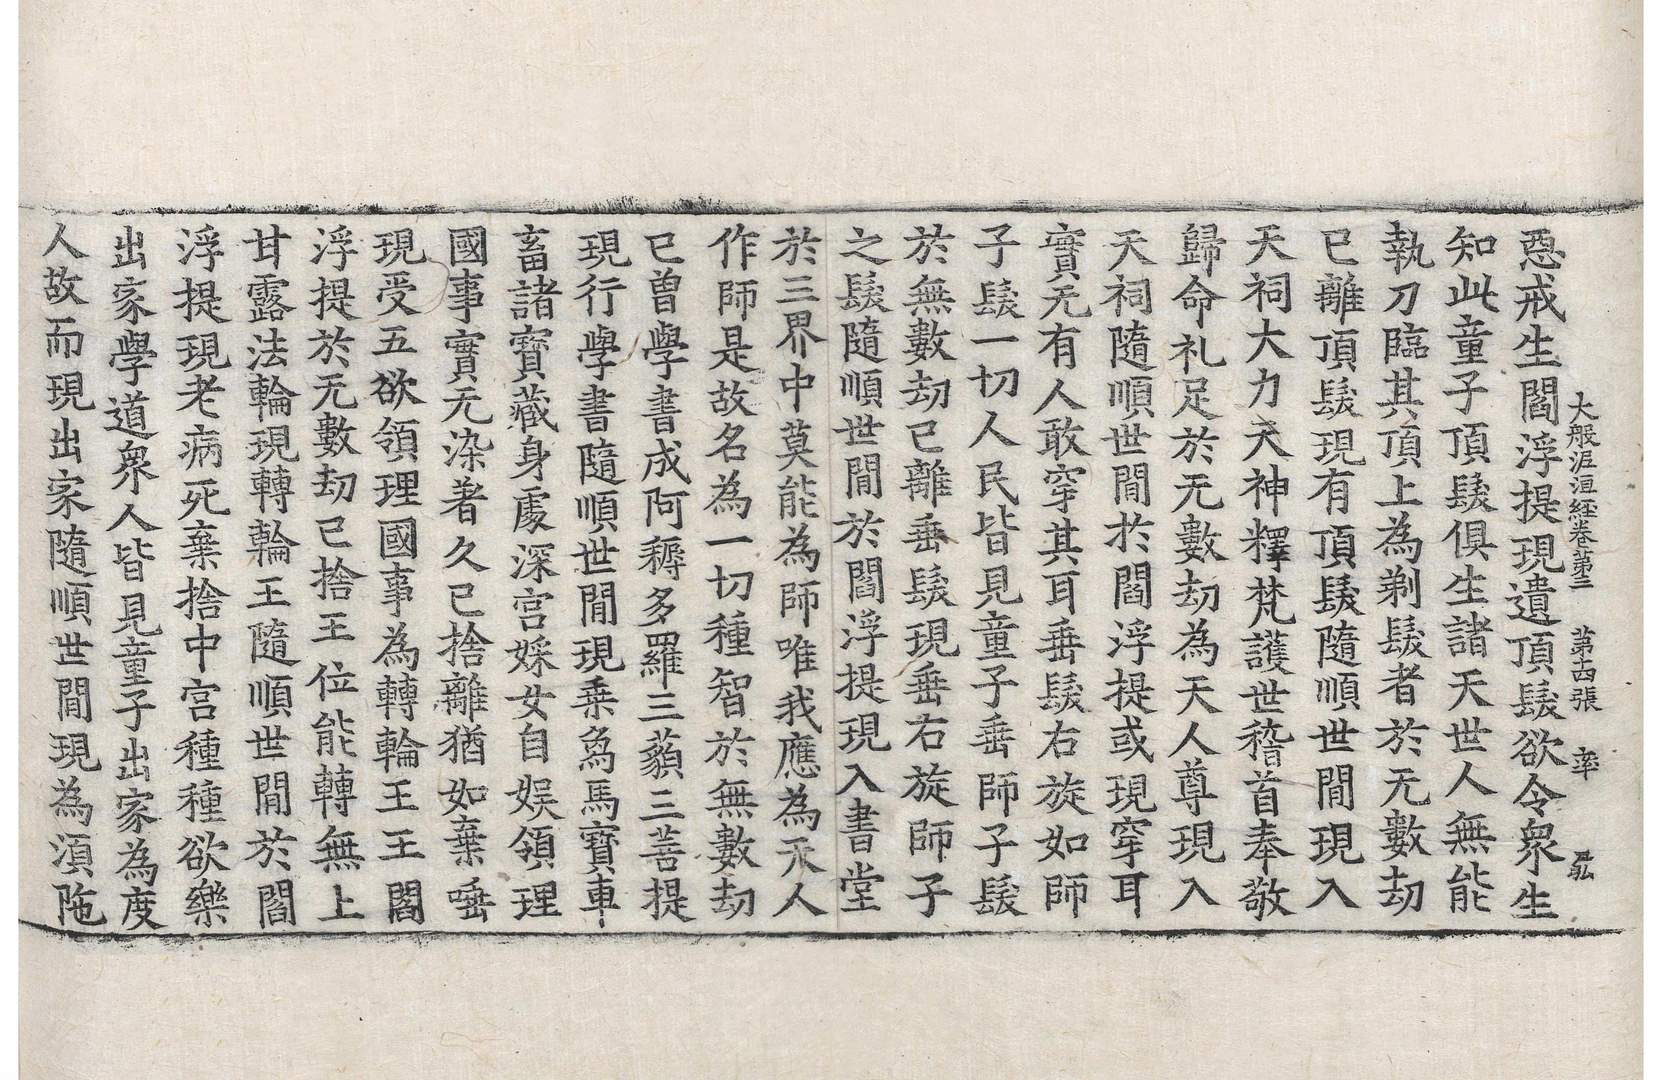 大般泥洹経卷第三　第十四張　率　弘
惡戒生閻浮提現遺頂髮欲令衆生
知此童子頂髮俱生諸天世人無能
執刀臨其頂上為剃髮者於无數劫
已離頂髮現有頂髮隨順世閒現入
天祠大力天神釋梵護世稽首奉敬
歸命礼足於无數劫為天人尊現入
天祠隨順世閒於閻浮提或現穿耳
實无有人敢穿其耳垂髮右旋如師
子髮一切人民皆見童子垂師子髮
於無數劫已離垂髮現垂右旋師子
之髮隨順世閒於閻浮提現入書堂
於三界中莫能為師唯我應為天人
作師是故名為一切種智於無數劫
已曾學書成阿耨多羅三藐三菩提
現行學書隨順世閒現乗烏馬寶車
畜諸寶藏身處深宮婇女自娱領理
國事實无染著久已捨離猶如棄唾
現受五欲領理國事為轉輪王王閻
浮提於无數劫已捨王位能轉無上
甘露法輪現轉輪王隨順世閒於閻
浮提現老病死棄捨中宮種種欲樂
出家學道衆人皆見童子出家為度
人故而現出家隨順世閒現為湏陁